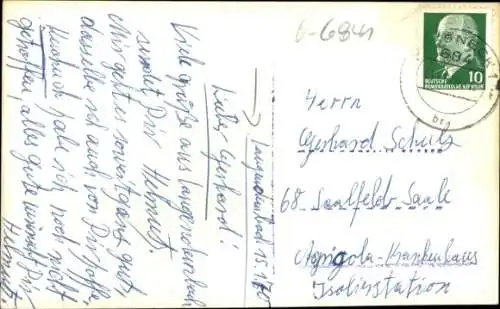 6-6841
10
DEUTSCHE
DEMOKRATISCHE REPUBLIK
Langendembach 15.1.70
Lieber Gerhard!
Viele Grüße aus Langendembach
sendet Dir Helmut.
Mir geht es soweit ganz gut,
dasselbe ich auch von Dir hoffe.
habe ich noch nicht
getroffen, alles gute wünscht Dir
Helmut
Herrn
Gerhard Schulz
68 Saalfeld-Saale
Agricola-Krankenhaus
Isolierstation